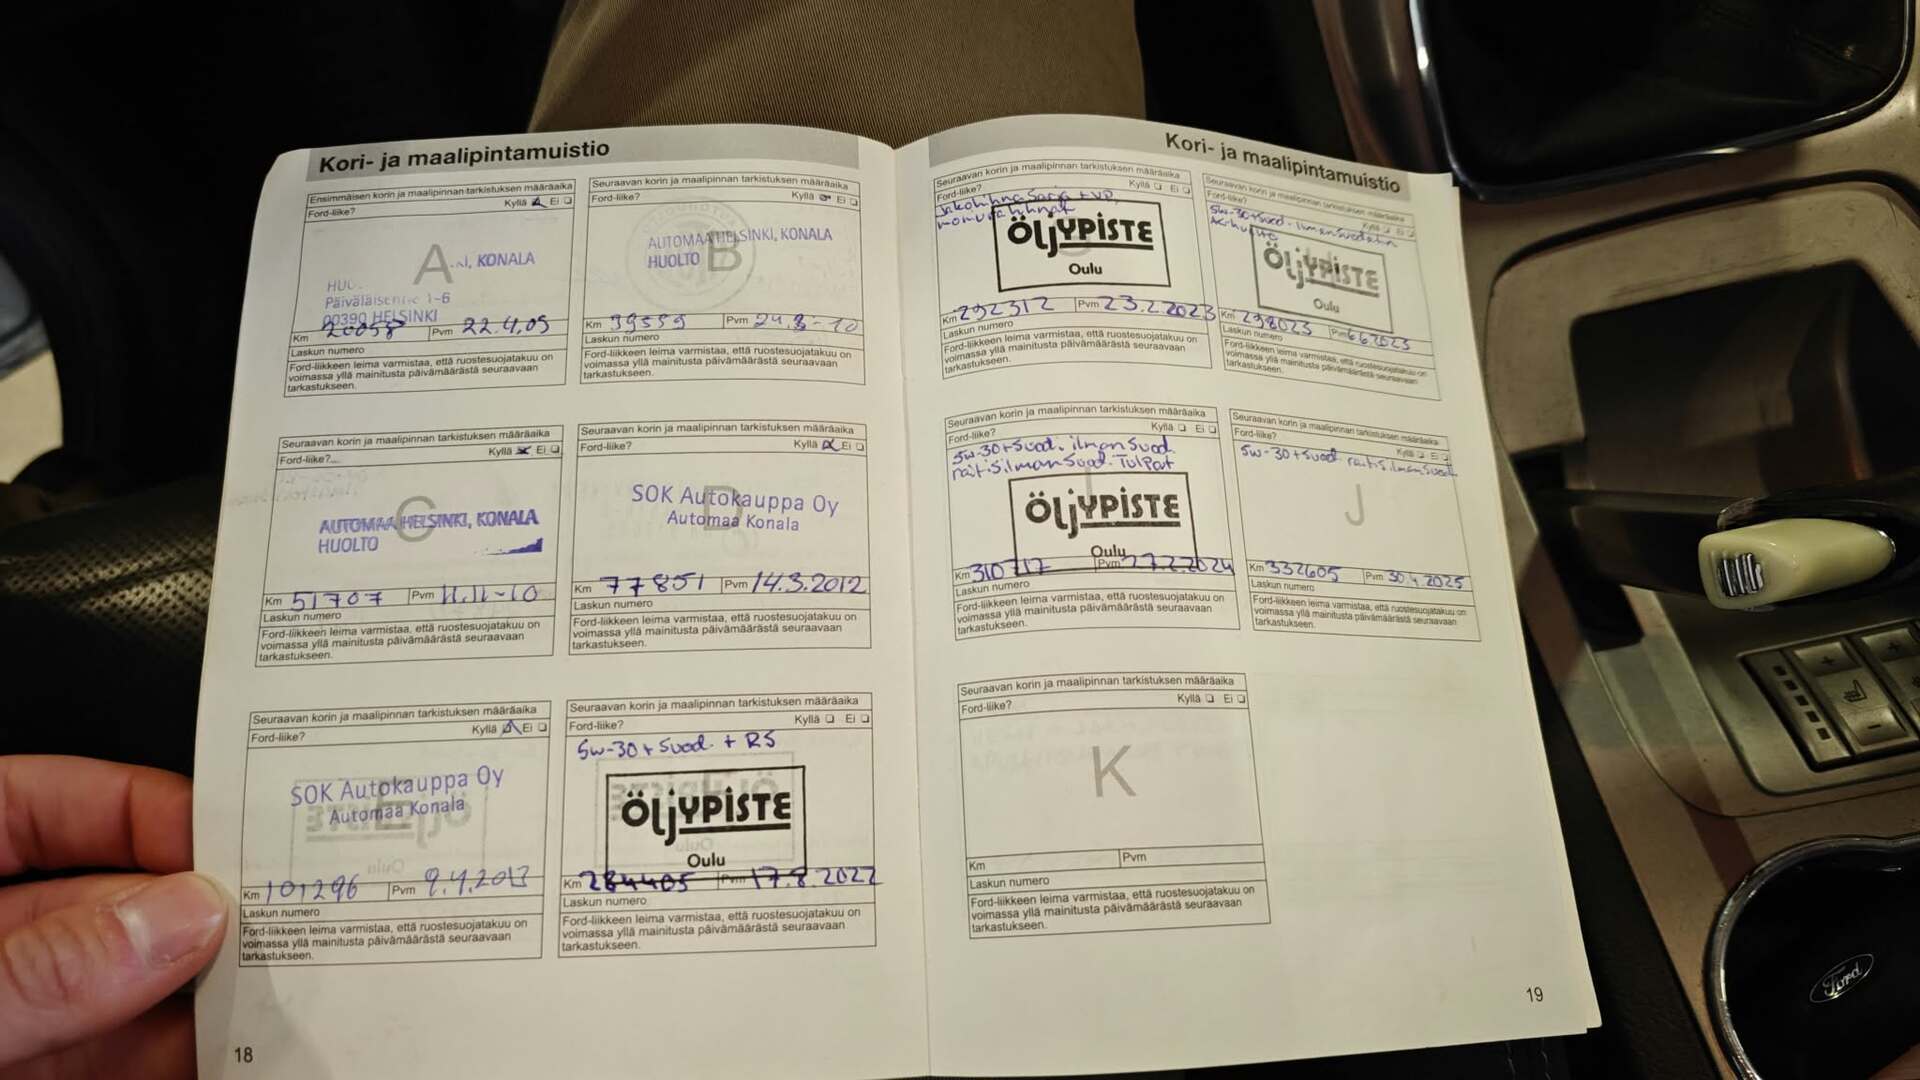 Kori- ja maalipintamuistio
Ensimmäisen korin ja maalipinnan tarkistuksen määräaika
Ford-liike? Kyllä Ei
A
KI, KONALA
HUO
Päiväläisentie 1-6
00390 HELSINKI
Km 20058 Pvm 22.4.09
Laskun numero
Ford-liikkeen leima varmistaa, että ruostesuojatakuu on
voimassa yllä mainitusta päivämäärästä seuraavaan
tarkastukseen.
Seuraavan korin ja maalipinnan tarkistuksen määräaika
Ford-liike? Kyllä Ei
B
AUTOMAA HELSINKI, KONALA
HUOLTO
Km 39559 Pvm 24.3-10
Laskun numero
Ford-liikkeen leima varmistaa, että ruostesuojatakuu on
voimassa yllä mainitusta päivämäärästä seuraavaan
tarkastukseen.
Seuraavan korin ja maalipinnan tarkistuksen määräaika
Ford-liike? Kyllä Ei
C
AUTOMAA HELSINKI, KONALA
HUOLTO
Km 51707 Pvm 11.11-10
Laskun numero
Ford-liikkeen leima varmistaa, että ruostesuojatakuu on
voimassa yllä mainitusta päivämäärästä seuraavaan
tarkastukseen.
Seuraavan korin ja maalipinnan tarkistuksen määräaika
Ford-liike? Kyllä Ei
D
SOK Autokauppa Oy
Automaa Konala
Km 77851 Pvm 14.3.2012
Laskun numero
Ford-liikkeen leima varmistaa, että ruostesuojatakuu on
voimassa yllä mainitusta päivämäärästä seuraavaan
tarkastukseen.
Seuraavan korin ja maalipinnan tarkistuksen määräaika
Ford-liike? Kyllä Ei
E
SOK Autokauppa Oy
Automaa Konala
Km 101296 Pvm 9.4.2013
Laskun numero
Ford-liikkeen leima varmistaa, että ruostesuojatakuu on
voimassa yllä mainitusta päivämäärästä seuraavaan
tarkastukseen.
Seuraavan korin ja maalipinnan tarkistuksen määräaika
Ford-liike? Kyllä Ei
5w-30 + Suod. + RS
ÖljYPiSTE
Oulu
Km 284405 Pvm 17.8.2022
Laskun numero
Ford-liikkeen leima varmistaa, että ruostesuojatakuu on
voimassa yllä mainitusta päivämäärästä seuraavaan
tarkastukseen.
18
Kori- ja maalipintamuistio
Seuraavan korin ja maalipinnan tarkistuksen määräaika
Ford-liike? Kyllä Ei
Jakohihnasarja + VP,
monurahihnat
ÖljYPiSTE
Oulu
Km 292312 Pvm 23.2.2023
Laskun numero
Ford-liikkeen leima varmistaa, että ruostesuojatakuu on
voimassa yllä mainitusta päivämäärästä seuraavaan
tarkastukseen.
Seuraavan korin ja maalipinnan tarkistuksen määräaika
Ford-liike? Kyllä Ei
5w-30 + Suod.
ÖljYPiSTE
Oulu
Km 298023 Pvm 6.6.2023
Laskun numero
Ford-liikkeen leima varmistaa, että ruostesuojatakuu on
voimassa yllä mainitusta päivämäärästä seuraavaan
tarkastukseen.
Seuraavan korin ja maalipinnan tarkistuksen määräaika
Ford-liike? Kyllä Ei
5w-30 + Suod. ilmanSuod.
rait.S.ilmanSuod. Tulpat
ÖljYPiSTE
Oulu
Km 310717 Pvm 27.2.2024
Laskun numero
Ford-liikkeen leima varmistaa, että ruostesuojatakuu on
voimassa yllä mainitusta päivämäärästä seuraavaan
tarkastukseen.
Seuraavan korin ja maalipinnan tarkistuksen määräaika
Ford-liike? Kyllä Ei
5w-30 + Suod. rait.S.ilmanSuod.
J
Km 332605 Pvm 30.4.2025
Laskun numero
Ford-liikkeen leima varmistaa, että ruostesuojatakuu on
voimassa yllä mainitusta päivämäärästä seuraavaan
tarkastukseen.
Seuraavan korin ja maalipinnan tarkistuksen määräaika
Ford-liike? Kyllä Ei
K
Km Pvm
Laskun numero
Ford-liikkeen leima varmistaa, että ruostesuojatakuu on
voimassa yllä mainitusta päivämäärästä seuraavaan
tarkastukseen.
19
Ford